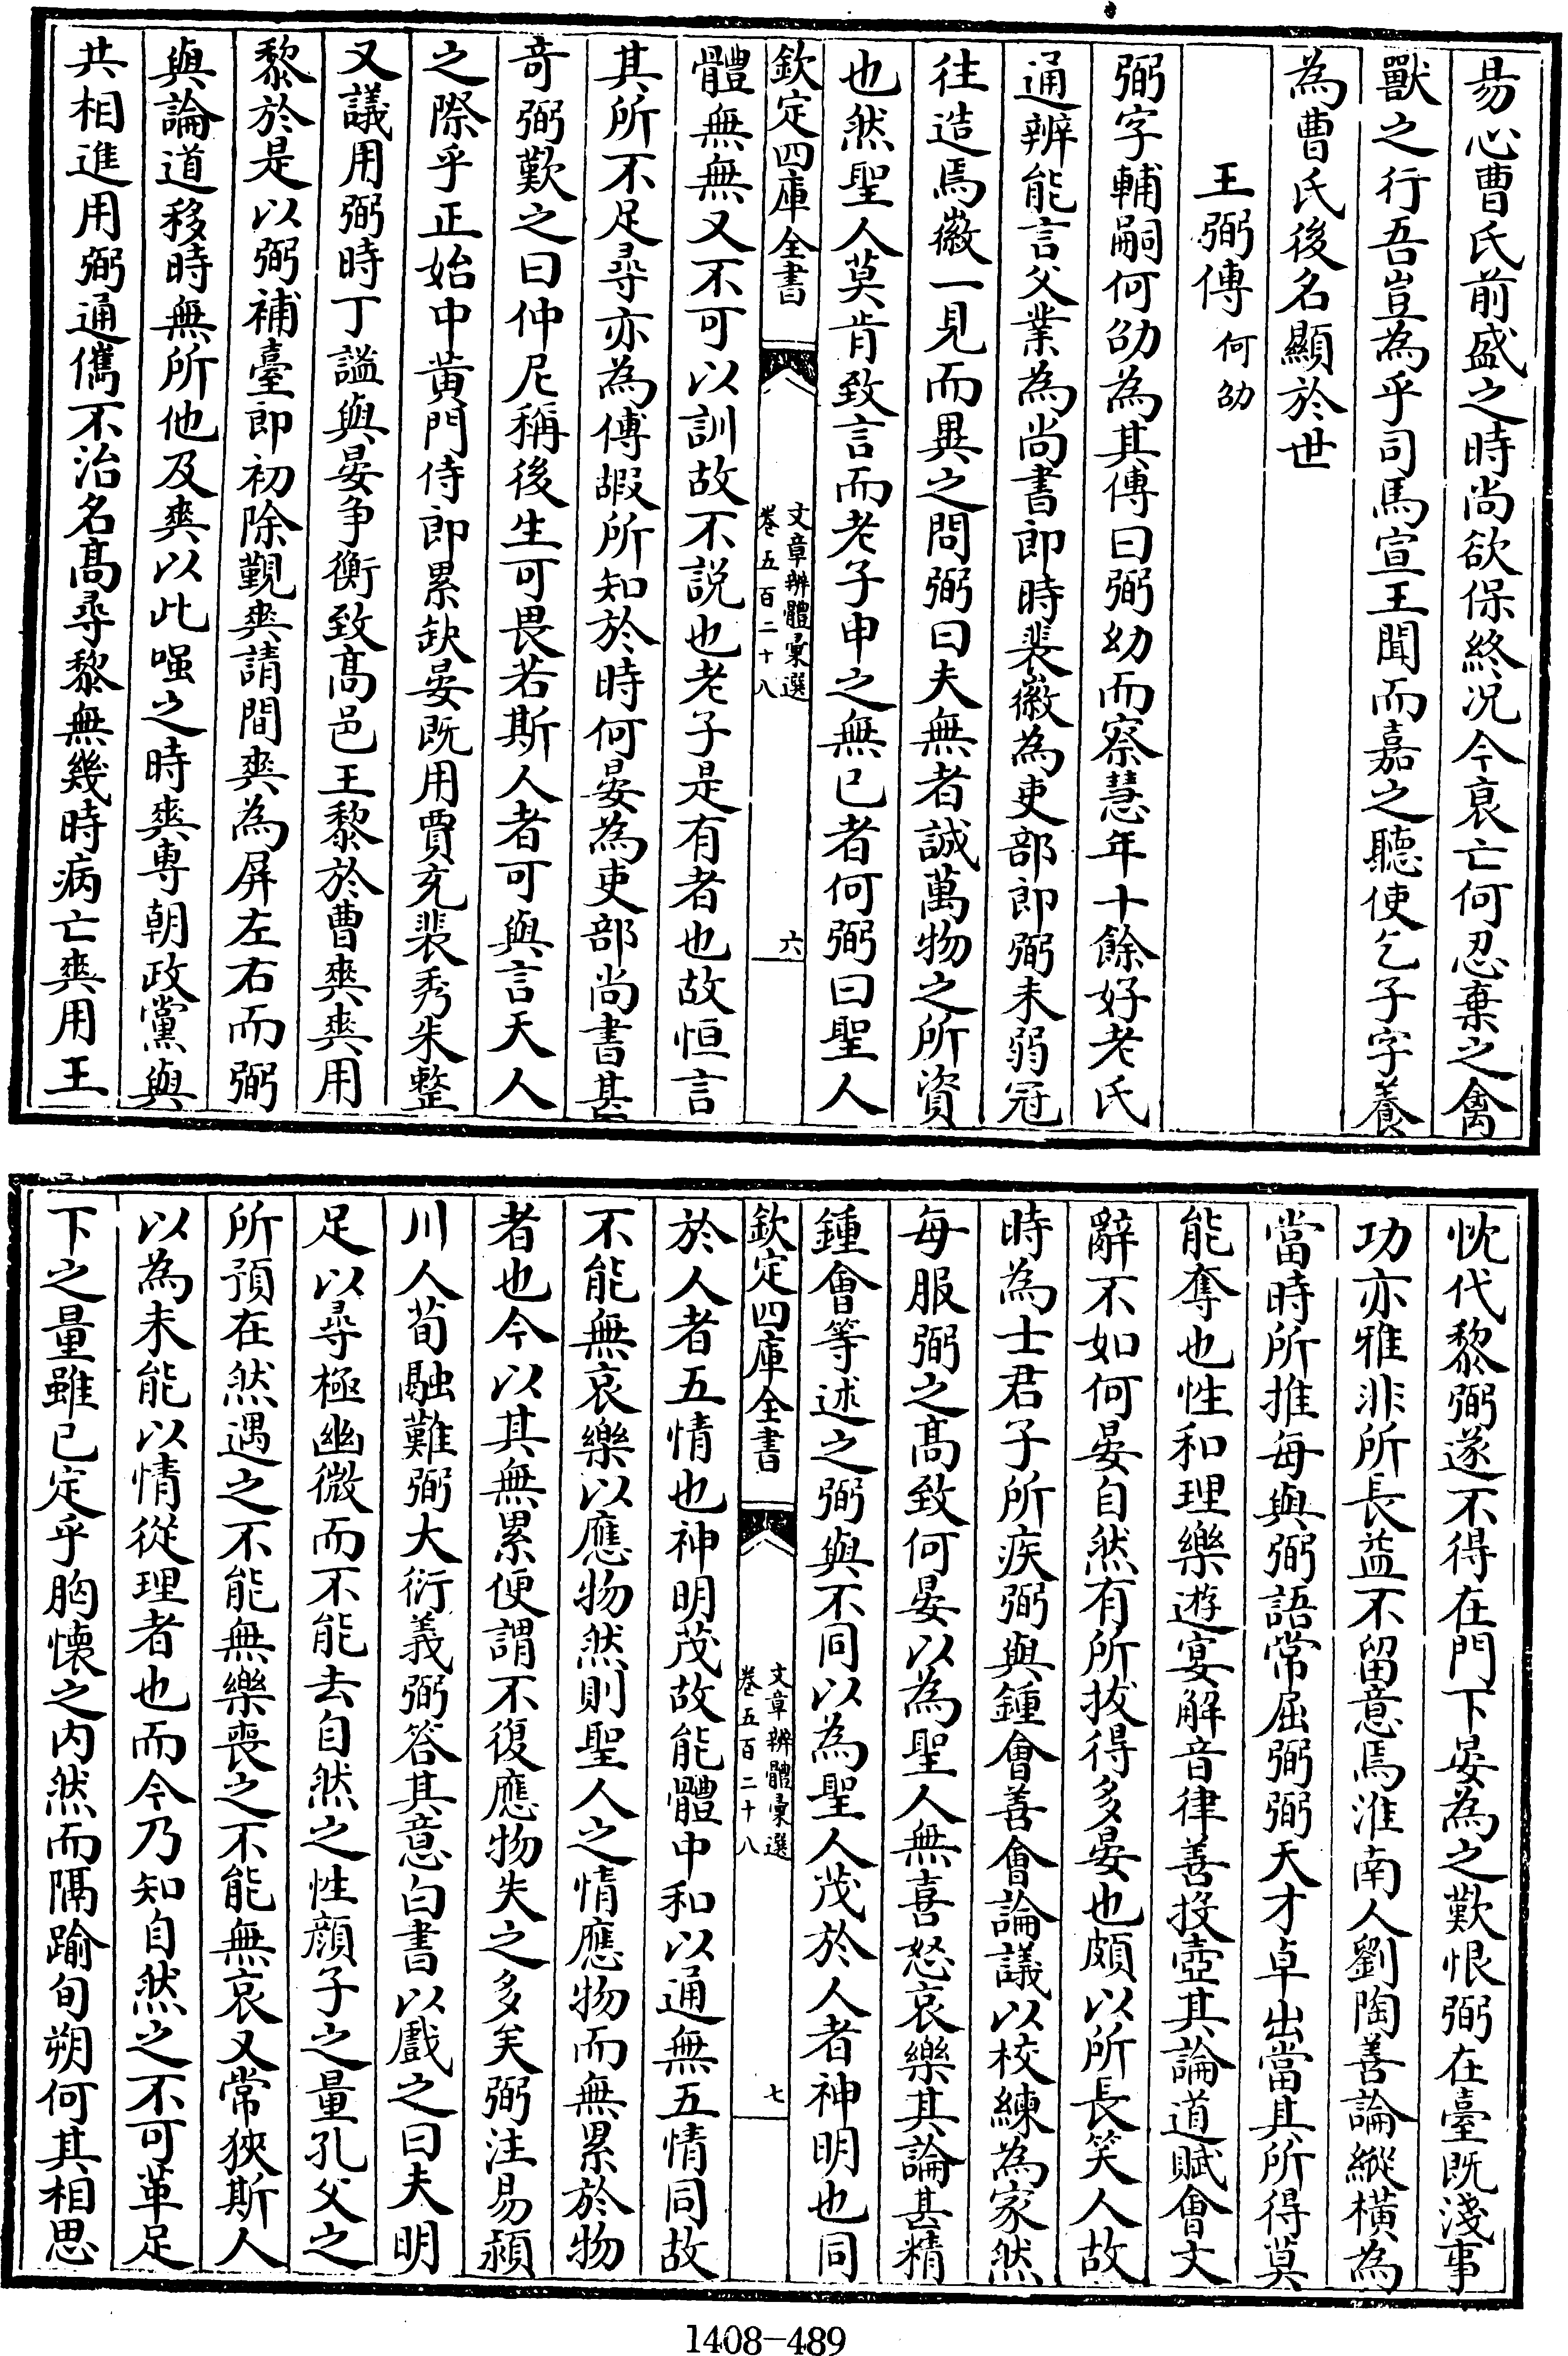 易心曹氏前盛之時尚欲保終况今衰亡何忍棄之禽
獸之行吾豈為乎司馬宣王聞而嘉之聽使乞子字養
為曹氏後名顯於世
王弼傳 何劭
弼字輔嗣何劭為其傳曰弼幼而察慧年十餘好老氏
通辨能言父業為尚書郎時裴徽為吏部郎弼未弱冠
往造焉徽一見而異之問弼曰夫無者誠萬物之所資
也然聖人莫肯致言而老子申之無已者何弼曰聖人
欽定四庫全書
文章辨體彙選
卷五百二十八
六
體無無又不可以訓故不說也老子是有者也故恒言
其所不足尋亦為傅嘏所知於時何晏為吏部尚書甚
奇弼歎之曰仲尼稱後生可畏若斯人者可與言天人
之際乎正始中黃門侍郎累缺晏既用賈充裴秀朱整
又議用弼時丁謐與晏爭衡致高邑王黎於曹爽爽用
黎於是以弼補臺郎初除覲爽請間爽為屏左右而弼
與論道移時無所他及爽以此嗤之時爽專朝政黨與
共相進用弼通儁不治名高尋黎無幾時病亡爽用王
忱代黎弼遂不得在門下晏為之歎恨弼在臺既淺事
功亦雅非所長益不留意焉淮南人劉陶善論縱橫為
當時所推每與弼語常屈弼弼天才卓出當其所得莫
能奪也性和理樂遊宴解音律善投壺其論道賦會文
辭不如何晏自然有所拔得多晏也頗以所長笑人故
時為士君子所疾弼與鍾會善會論議以校練為家然
每服弼之高致何晏以為聖人無喜怒哀樂其論甚精
鍾會等述之弼與不同以為聖人茂於人者神明也同
欽定四庫全書
文章辨體彙選
卷五百二十八
七
於人者五情也神明茂故能體中和以通無五情同故
不能無哀樂以應物然則聖人之情應物而無累於物
者也今以其無累便謂不復應物失之多矣弼注易潁
川人荀融難弼大衍義弼答其意白書以戲之曰夫明
足以尋極幽微而不能去自然之性顏子之量孔父之
所預在然遇之不能無樂喪之不能無哀又常狹斯人
以為未能以情從理者也而今乃知自然之不可革足
下之量雖已定乎胸懷之內然而隔踰旬朔何其相思
1408-489